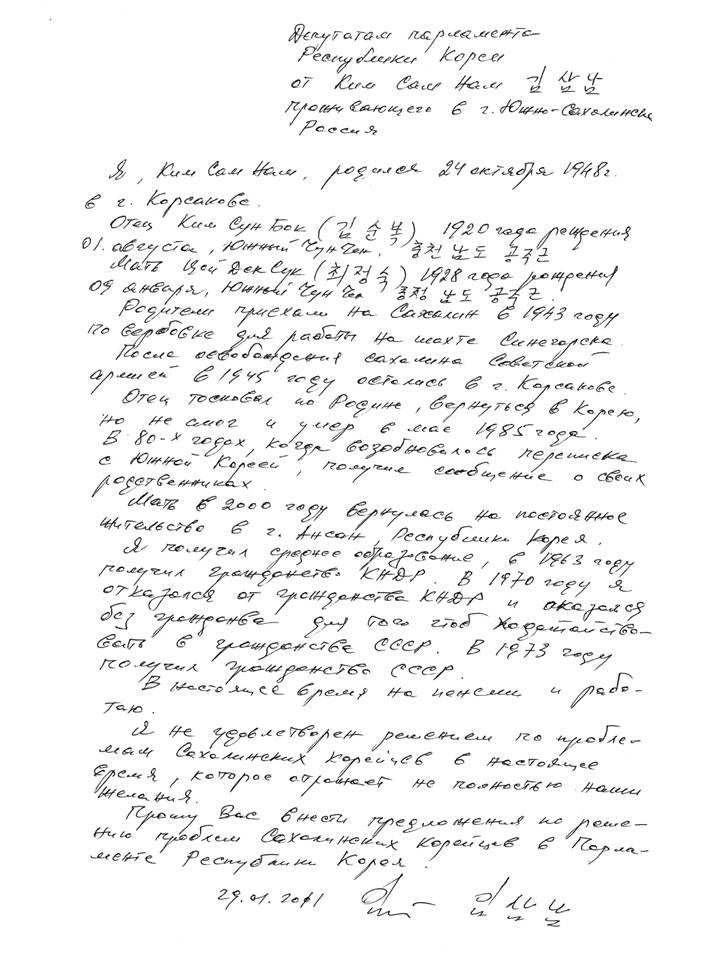 Депутатам парламента
Республики Корея
от Ким Сам Нам 김삼남
проживающего в г. Южно-Сахалинске
Россия
Я, Ким Сам Нам, родился 24 октября 1948г.
в г. Корсакове.
Отец Ким Сун Бок (김순복) 1920 года рождения
01. августа, Южный Чун Чен, 충천남도 공주군
Мать Цой Ден Сук (최정숙) 1928 года рождения
09 января, Южный Чун Чен 충청남도 공주군.
Родители приехали на Сахалин в 1943 году
по вербовке для работы на шахте Синегорска.
После освобождения сахалина Советской
армией в 1945 году остались в г. Корсакове.
Отец тосковал по Родине, вернуться в Корею,
но не смог и умер в мае 1985 года.
В 80-х годах, когда возобновилось переписка
с Южной Кореей, получил сообщение о своих
родственниках.
Мать в 2000 году вернулась на постоянное
жительство в г. Ансан, Республики Корея.
Я получил среднее образование, в 1963 году
получил гражданство КНДР. В 1970 году я
отказался от гражданства КНДР и оказался
без гражданва для того чтоб ходатайство-
вать в гражданства СССР. В 1973 году
получил гражданство СССР.
В настоящее время на пенсии и рабо-
таю.
Я не удовлетворен решением по пробле-
мам Сахалинских Корейцев в настоящее
время, которое отражает не полностью наши
желания.
Прошу Вас внести предложения по реше-
нию проблем Сахалинских Корейцев в Парла-
менте Республики Корея.
29.01.2011 김삼남